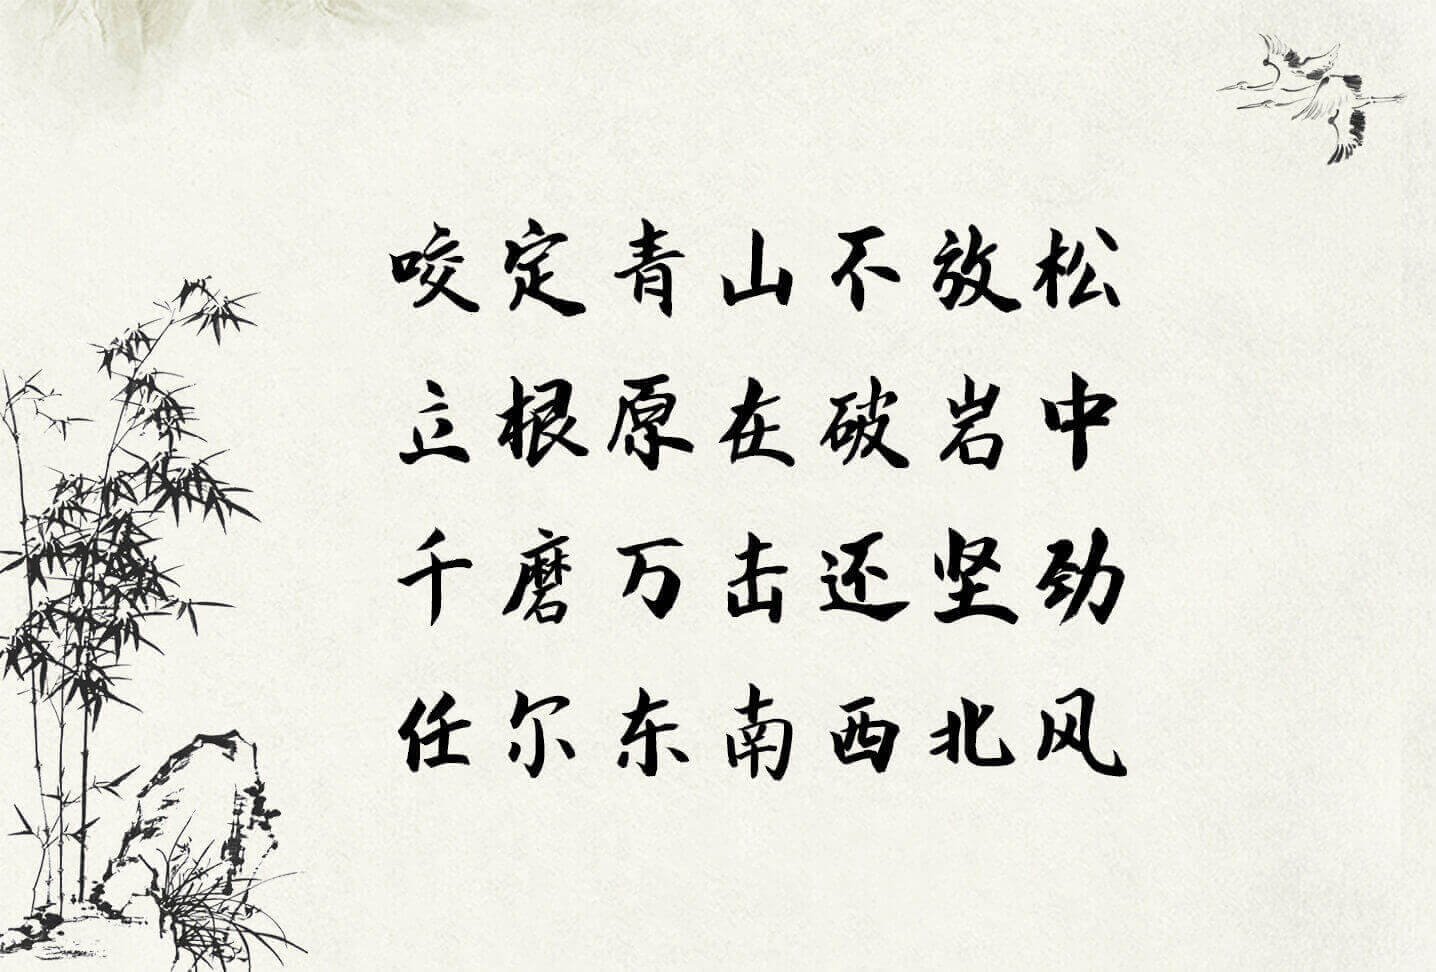 咬定青山不放松
立根原在破岩中
千磨万击还坚劲
任尔东南西北风